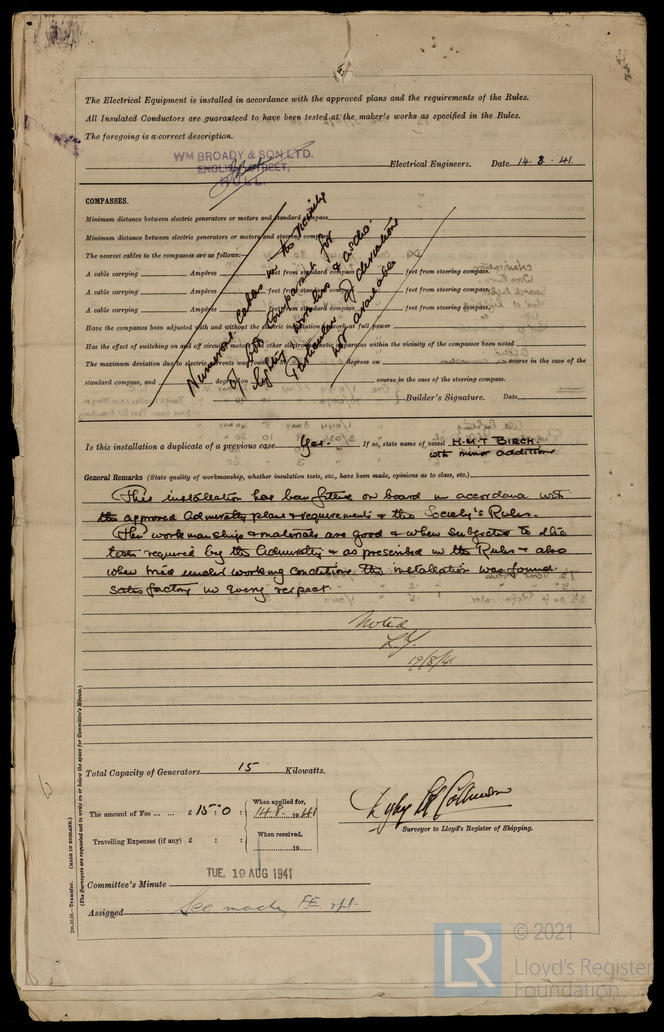 The Electrical Equipment is installed in accordance with the approved plans and the requirements of the Rules.
All Insulated Conductors are guaranteed to have been tested at the maker's works as specified in the Rules.
The foregoing is a correct description.
WM BROADY & SON LTD.
ENGLISH STREET,
HULL.
Electrical Engineers. Date 14.8.41
COMPASSES.
Minimum distance between electric generators or motors and standard compass
Minimum distance between electric generators or motors and steering compass
The nearest cables to the compasses are as follows:—
A cable carrying Ampères feet from standard compass feet from steering compass.
A cable carrying Ampères feet from standard compass feet from steering compass.
A cable carrying Ampères feet from standard compass feet from steering compass.
Have the compasses been adjusted with and without the electric installation at work at full power
Has the effect of switching on and off circuits, motors and other electromagnetic apparatus within the vicinity of the compasses been noted
The maximum deviation due to electric currents was found degrees on course in the case of the
standard compass, and degrees on course in the case of the steering compass.
Numerous cables in the vicinity
of both compasses for
lighting wireless & asdic.
Particulars of deviations
not available
Builder's Signature. Date
Is this installation a duplicate of a previous case Yes. If so, state name of vessel H.M.T BIRCH.
with minor additions
General Remarks (State quality of workmanship, whether insulation tests, etc., have been made, opinions as to class, etc.)
This installation has been fitted on board in accordance with
the approved Admiralty plans & requirements & the Society's Rules.
The workmanship & materials are good & when subjected to the
tests required by the Admiralty & as prescribed in the Rules & also
when tried under working conditions the installation was found
satisfactory in every respect.
Noted
19/8/41
Total Capacity of Generators 15 Kilowatts.
The amount of Fee ... ... £ 15:0 : When applied for, 14.8.1941
Travelling Expenses (if any) £ : : When received, 19
Surveyor to Lloyd's Register of Shipping.
TUE. 19 AUG 1941
Committee's Minute
Assigned See machy FE rpt.
(MADE IN ENGLAND.)
(The Surveyors are requested not to write on or below the space for Committee's Minute.)
LR
© 2021
Lloyd's Register
Foundation